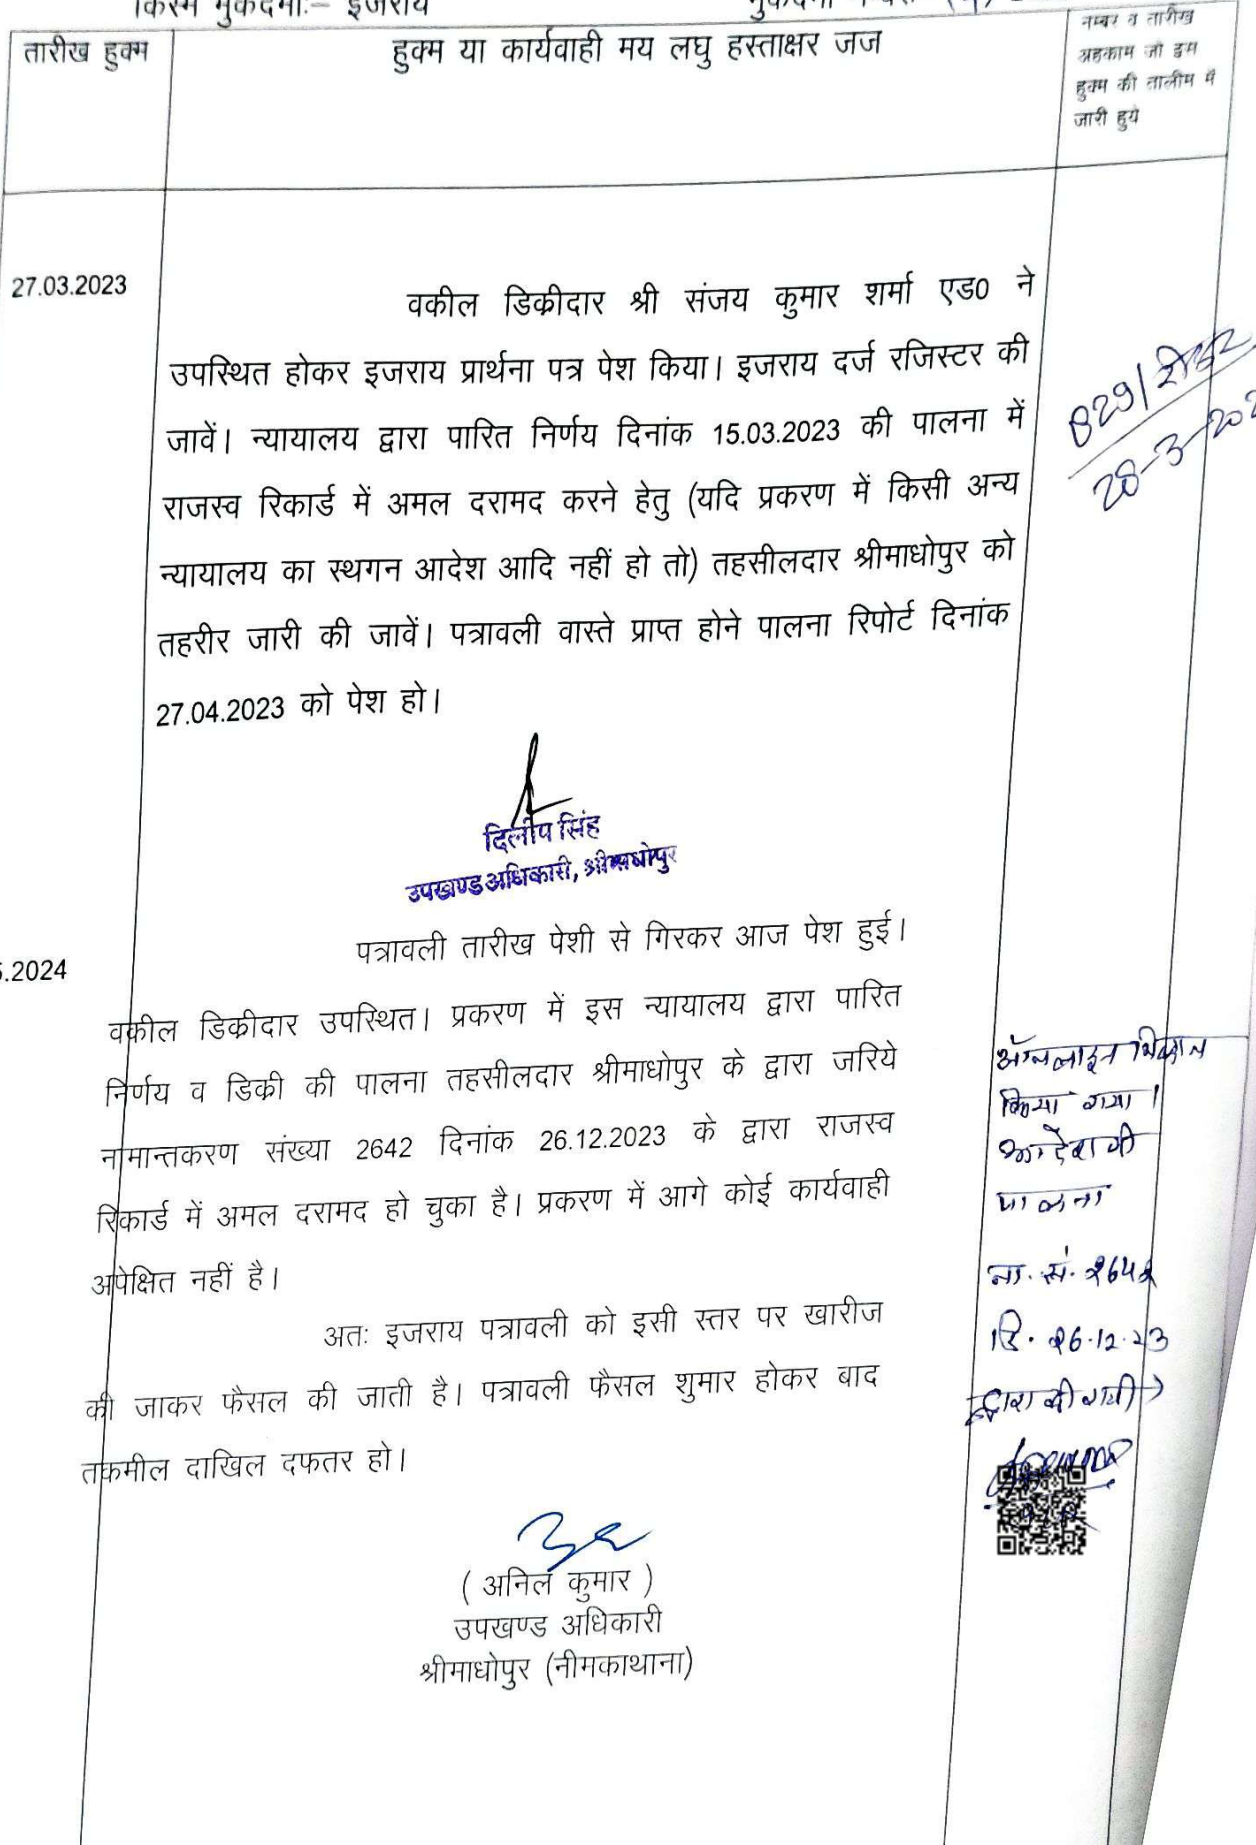 किस्म मुकदमाः– इजराय
तारीख हुक्म
हुक्म या कार्यवाही मय लघु हस्ताक्षर जज
नम्बर व तारीख
अहकाम जो इस
हुक्म की तालीम में
जारी हुये
27.03.2023
वकील डिक्रीदार श्री संजय कुमार शर्मा एड0 ने
उपस्थित होकर इजराय प्रार्थना पत्र पेश किया। इजराय दर्ज रजिस्टर की
जावें। न्यायालय द्वारा पारित निर्णय दिनांक 15.03.2023 की पालना में
राजस्व रिकार्ड में अमल दरामद करने हेतु (यदि प्रकरण में किसी अन्य
न्यायालय का स्थगन आदेश आदि नहीं हो तो) तहसीलदार श्रीमाधोपुर को
तहरीर जारी की जावें। पत्रावली वास्ते प्राप्त होने पालना रिपोर्ट दिनांक
27.04.2023 को पेश हो।
829/रीडर
28-3-202
दिलीप सिंह
उपखण्ड अधिकारी, श्रीमाधोपुर
.2024
पत्रावली तारीख पेशी से गिरकर आज पेश हुई।
वकील डिक्रीदार उपस्थित। प्रकरण में इस न्यायालय द्वारा पारित
निर्णय व डिक्री की पालना तहसीलदार श्रीमाधोपुर के द्वारा जरिये
नामान्तकरण संख्या 2642 दिनांक 26.12.2023 के द्वारा राजस्व
रिकार्ड में अमल दरामद हो चुका है। प्रकरण में आगे कोई कार्यवाही
अपेक्षित नहीं है।
अतः इजराय पत्रावली को इसी स्तर पर खारीज
की जाकर फैसल की जाती है। पत्रावली फैसल शुमार होकर बाद
तकमील दाखिल दफतर हो।
ऑनलाइन
किया गया।
आदेश की
पालना
ना. सं. 2642
दि. 26.12.23
द्वारा की गयी
( अनिल कुमार )
उपखण्ड अधिकारी
श्रीमाधोपुर (नीमकाथाना)